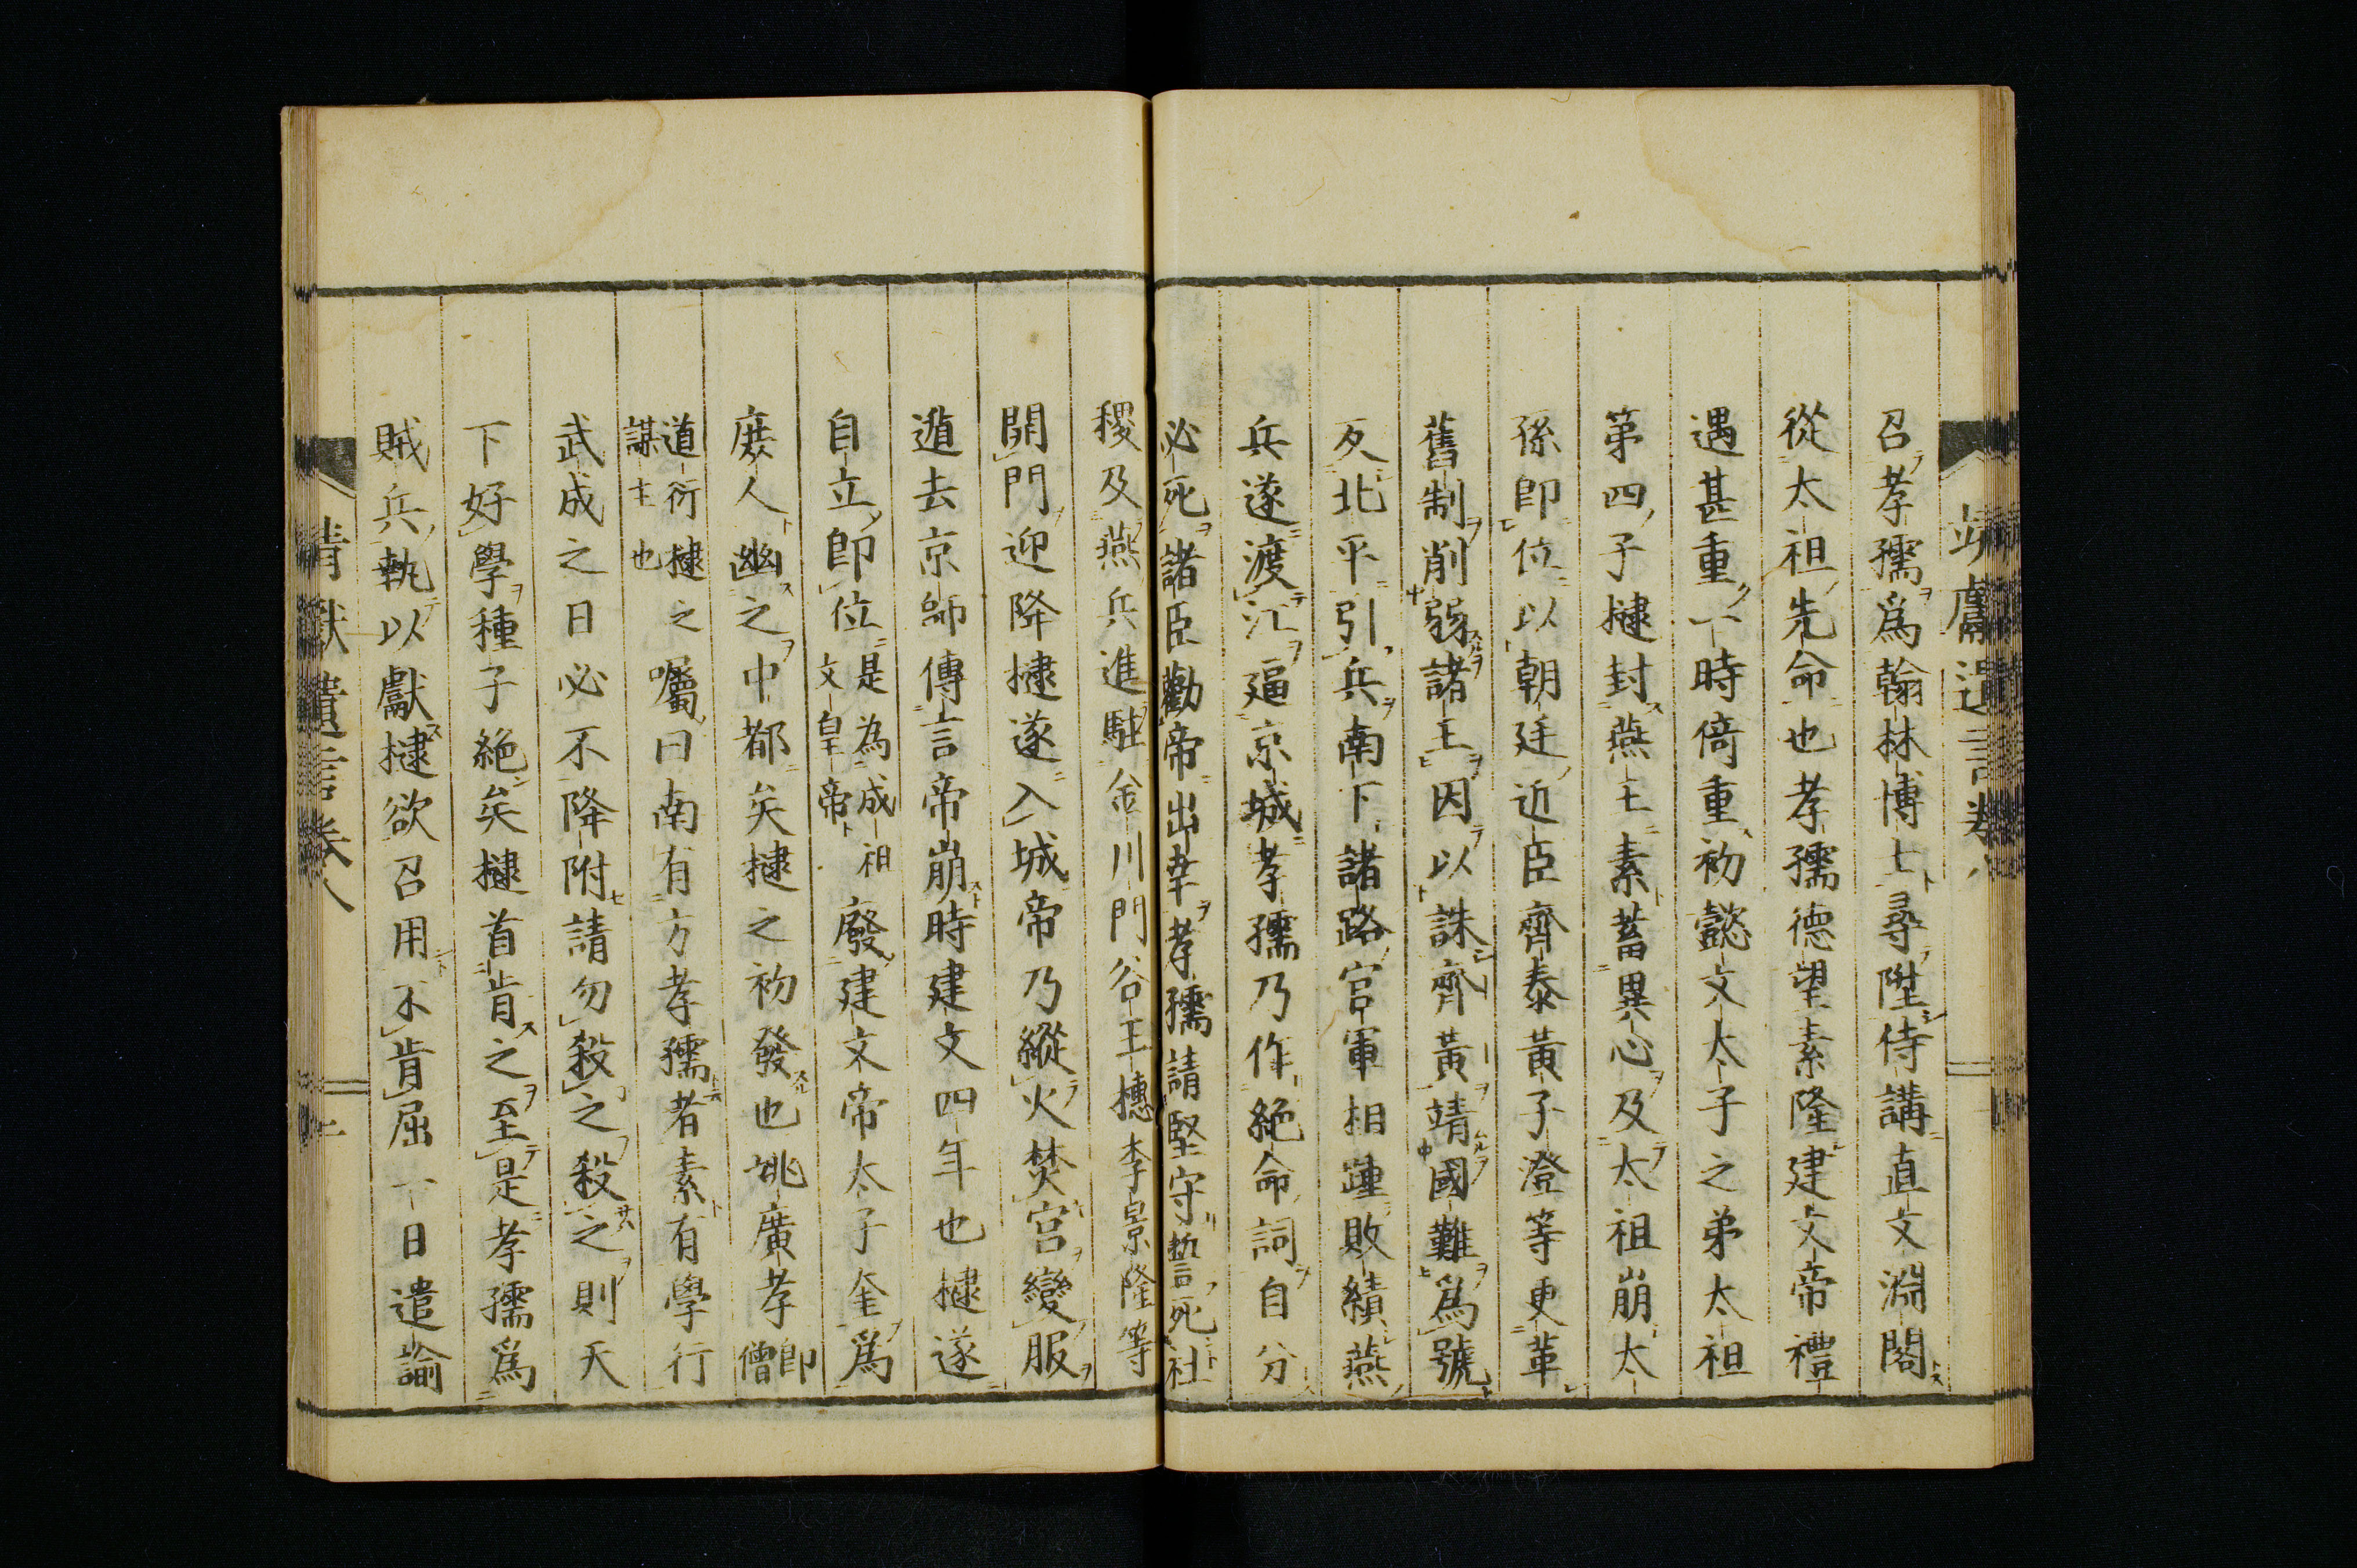 靖獻遺言卷八
召孝孺爲翰林博士尋陞侍講直文淵閣
從太祖先命也孝孺德望素隆建文帝禮
遇甚重一時倚重初懿文太子之弟太祖
第四子㨗封燕王素蓄異心及太祖崩太
孫卽位以朝廷近臣齊泰黃子澄等更革
舊制削弱諸王因以誅齊黃靖國難爲號
反北平引兵南下諸路官軍相踵敗績燕
兵遂渡江逼京城孝孺乃作絶命詞自分
必死諸臣勸帝出幸孝孺請堅守誓死社
稷及燕兵進駐金川門谷王橞李景隆等
開門迎降㨗遂入城帝乃縱火焚宮變服
遁去京師傳言帝崩時建文四年也㨗遂
自立卽位是為成祖文皇帝廢建文帝太子奎爲
庶人幽之中都矣㨗之初發也姚廣孝卽僧
道衍㨗之謀主也囑曰南有方孝孺者素有學行
武成之日必不降附請勿殺之殺之則天
下好學種子絶矣㨗首肯之至是孝孺爲
賊兵執以獻㨗欲召用不肯屈一日遣諭
靖獻遺言卷八